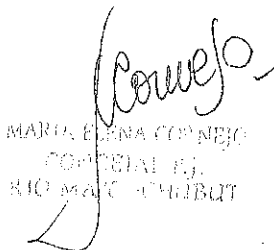 Cornejo
MARIA ELENA CORNEJO
CONCEJAL P.J.
RIO MAYO - CHUBUT